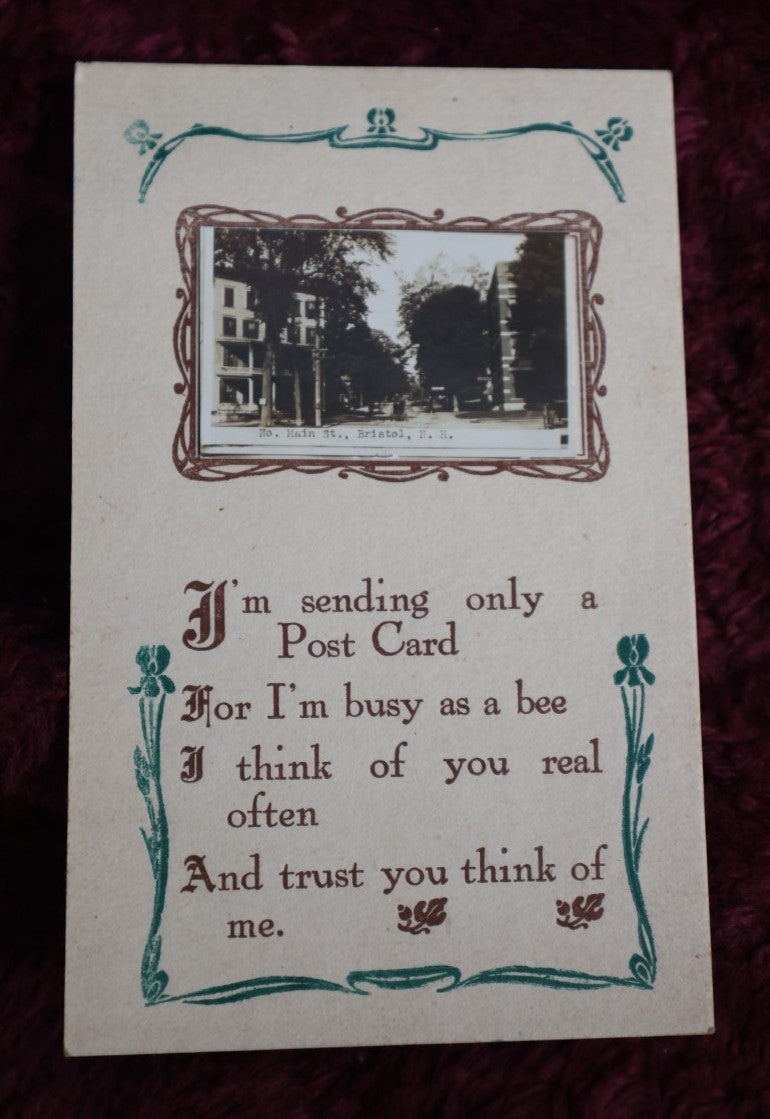 No. Main St., Bristol, N. H.
I'm sending only a
Post Card
For I'm busy as a bee
I think of you real
often
And trust you think of
me.